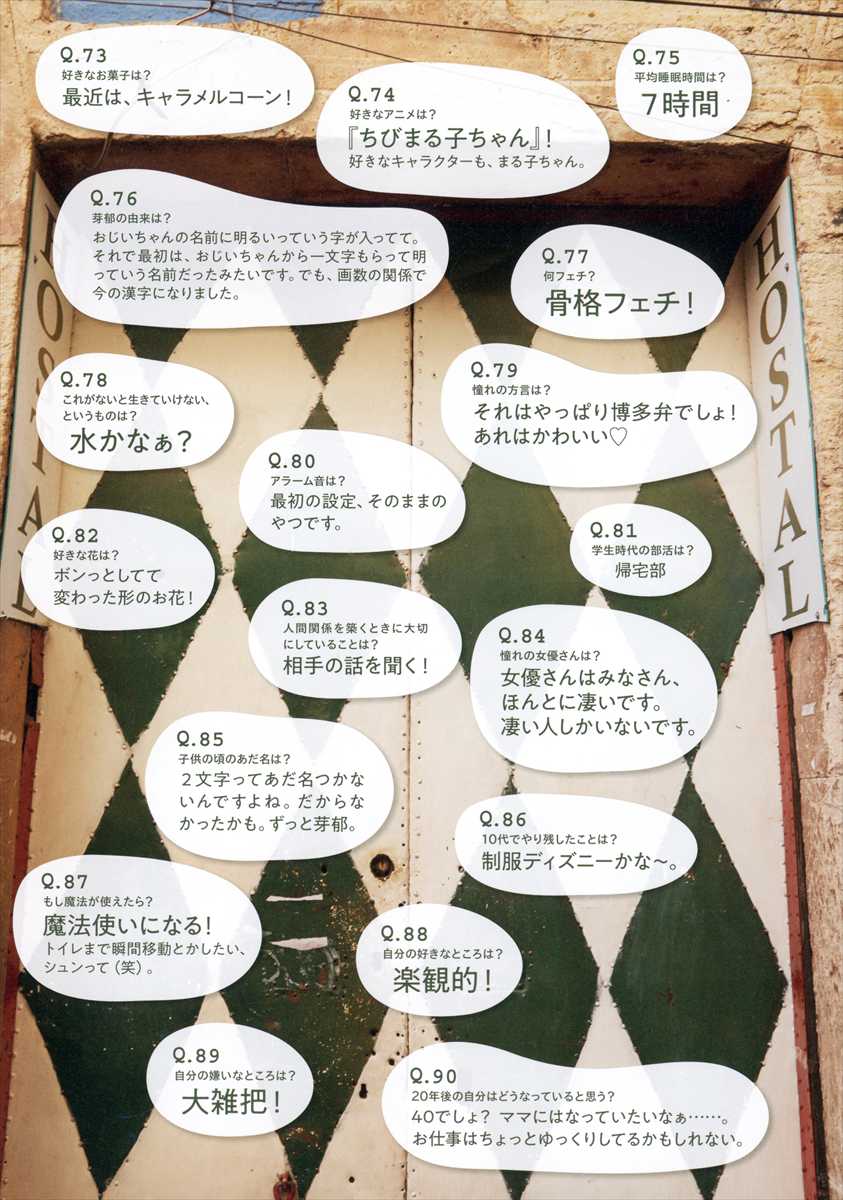 Q.73
好きなお菓子は?
最近は、キャラメルコーン!
Q.74
好きなアニメは?
『ちびまる子ちゃん』!
好きなキャラクターも、まる子ちゃん。
Q.75
平均睡眠時間は?
7時間
Q.76
芽郁の由来は?
おじいちゃんの名前に明るいっていう字が入ってて。
それで最初は、おじいちゃんから一文字もらって明
っていう名前だったみたいです。でも、画数の関係で
今の漢字になりました。
Q.77
何フェチ?
骨格フェチ!
Q.78
これがないと生きていけない、
というものは?
水かなぁ?
Q.79
憧れの方言は?
それはやっぱり博多弁でしょ!
あれはかわいい♡
Q.80
アラーム音は?
最初の設定、そのままの
やつです。
Q.81
学生時代の部活は?
帰宅部
Q.82
好きな花は?
ボンっとしてて
変わった形のお花!
Q.83
人間関係を築くときに大切
にしていることは?
相手の話を聞く!
Q.84
憧れの女優さんは?
女優さんはみなさん、
ほんとに凄いです。
凄い人しかいないです。
Q.85
子供の頃のあだ名は?
2文字ってあだ名つかな
いんですよね。だからな
かったかも。ずっと芽郁。
Q.86
10代でやり残したことは?
制服ディズニーかな〜。
Q.87
もし魔法が使えたら?
魔法使いになる!
トイレまで瞬間移動とかしたい、
シュンって(笑)。
Q.88
自分の好きなところは?
楽観的!
Q.89
自分の嫌いなところは?
大雑把!
Q.90
20年後の自分はどうなっていると思う?
40でしょ? ママにはなっていたいなぁ……。
お仕事はちょっとゆっくりしてるかもしれない。
HOSTAL
HOSTAL